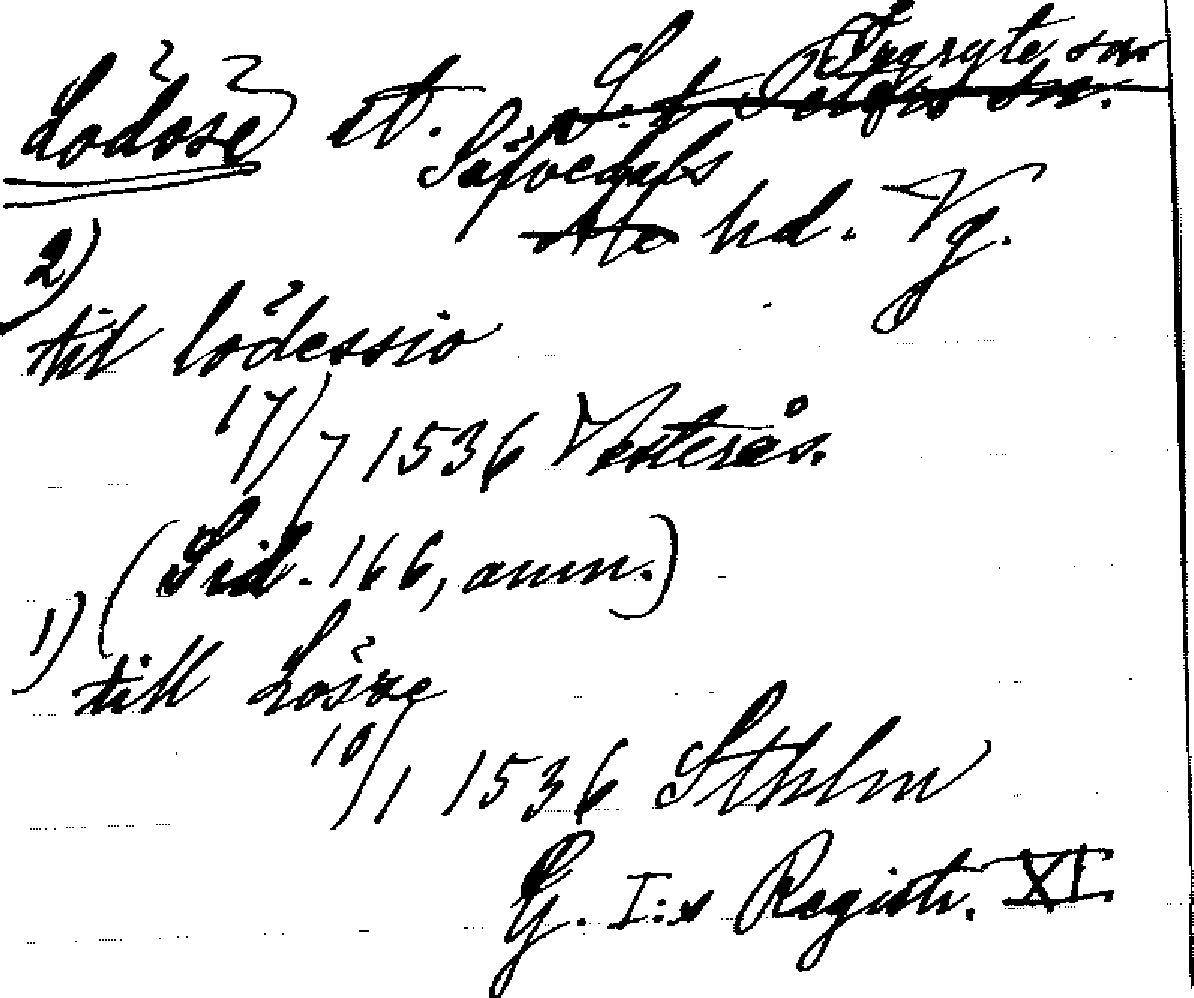 Lödöse st. Örgryte sn
S:t Peders sn.
Säfvedals
Ale hd. Vg.
2)
til lödessio
17/7 1536 Vesterås.
(Sid. 166, anm.)
1)
till Lösze
10/1 1536 Sthlm
G. I:s Registr. XI